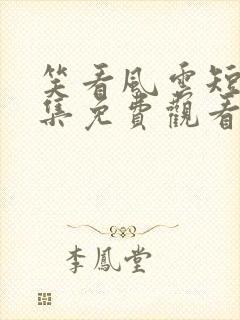 笑看風雲短
集免費觀看
李鳳堂